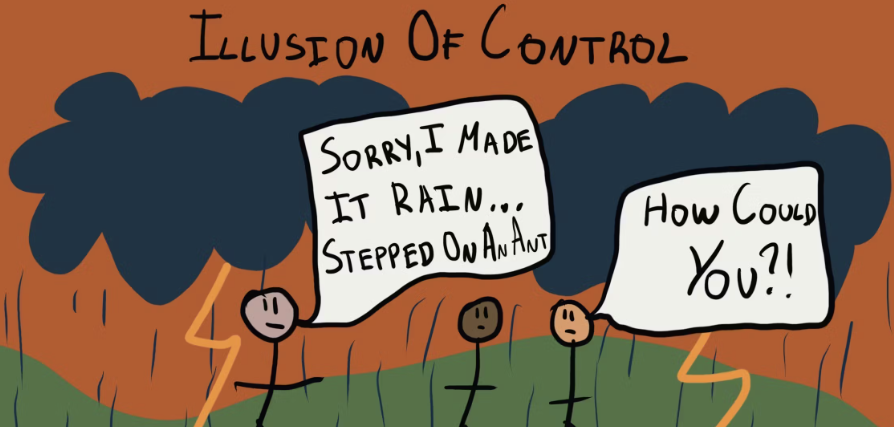 Illusion Of Control
Sorry, I Made
It Rain...
Stepped On An Ant
How Could
You?!